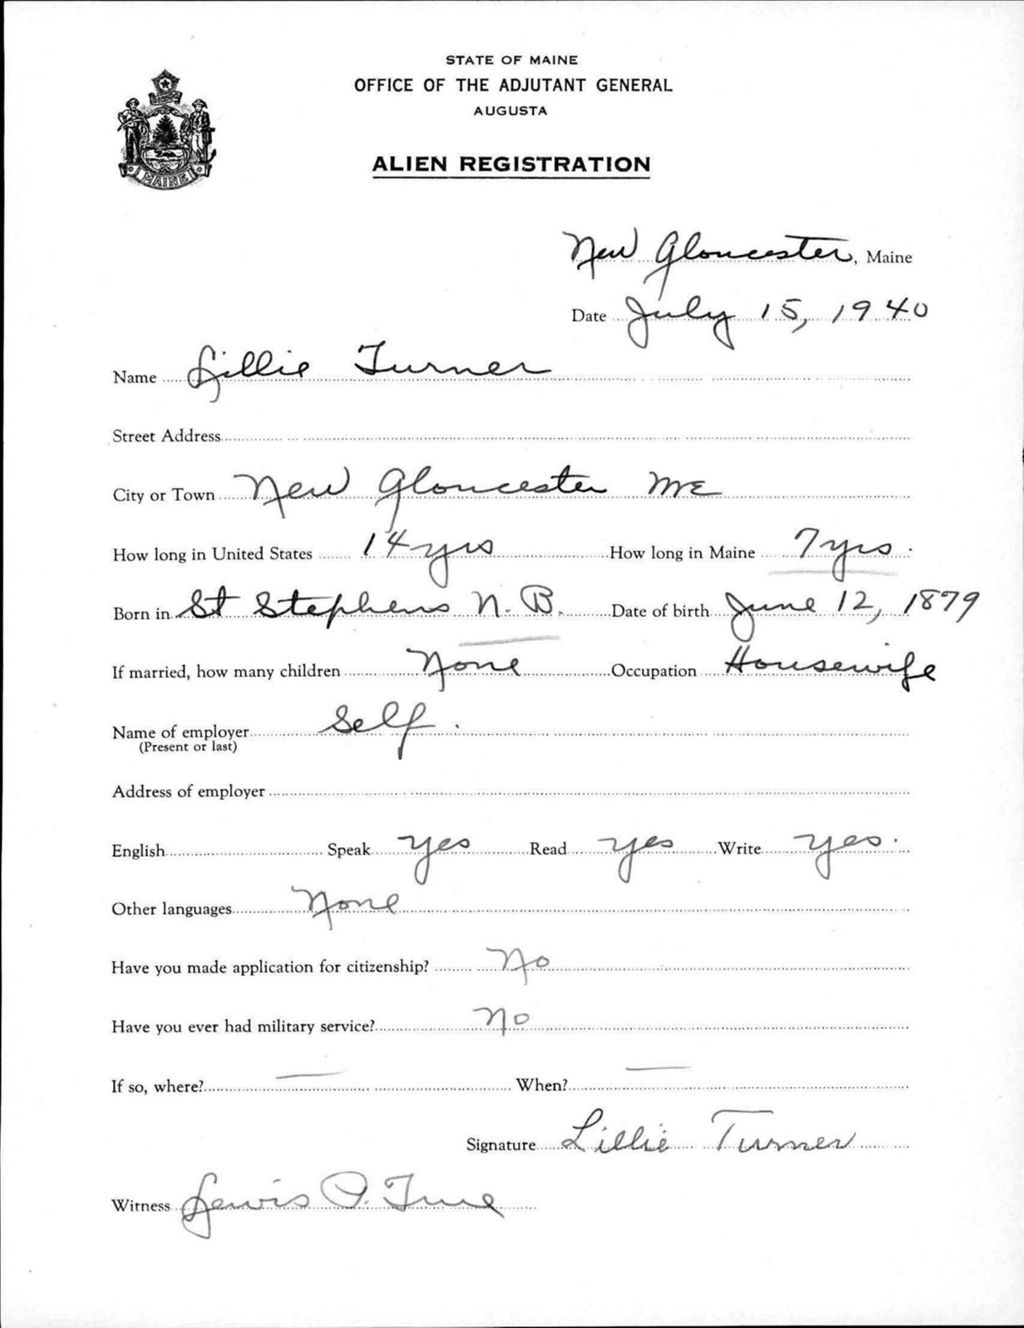 STATE OF MAINE
OFFICE OF THE ADJUTANT GENERAL
AUGUSTA
ALIEN REGISTRATION
MAINE
New Gloucester, Maine
Date July 15, 1940
Name Lillie Turner
Street Address
City or Town New Gloucester ME
How long in United States 14 yrs How long in Maine 7 yrs.
Born in St Stephens N. B. Date of birth June 12, 1879
If married, how many children None Occupation Housewife
Name of employer Self.
(Present or last)
Address of employer
English Speak yes Read yes Write yes.
Other languages None
Have you made application for citizenship? No
Have you ever had military service? No
If so, where? — When? —
Signature Lillie Turner
Witness Lewis P. True